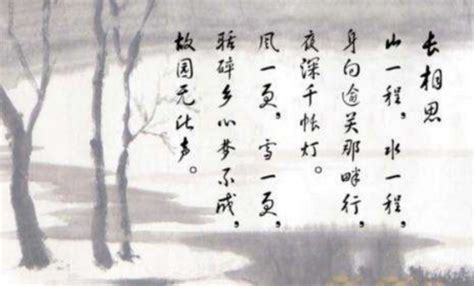 长相思
山一程，水一程，
身向逾关那畔行，
夜深千帐灯。
风一更，雪一更，
聒碎乡心梦不成，
故园无此声。